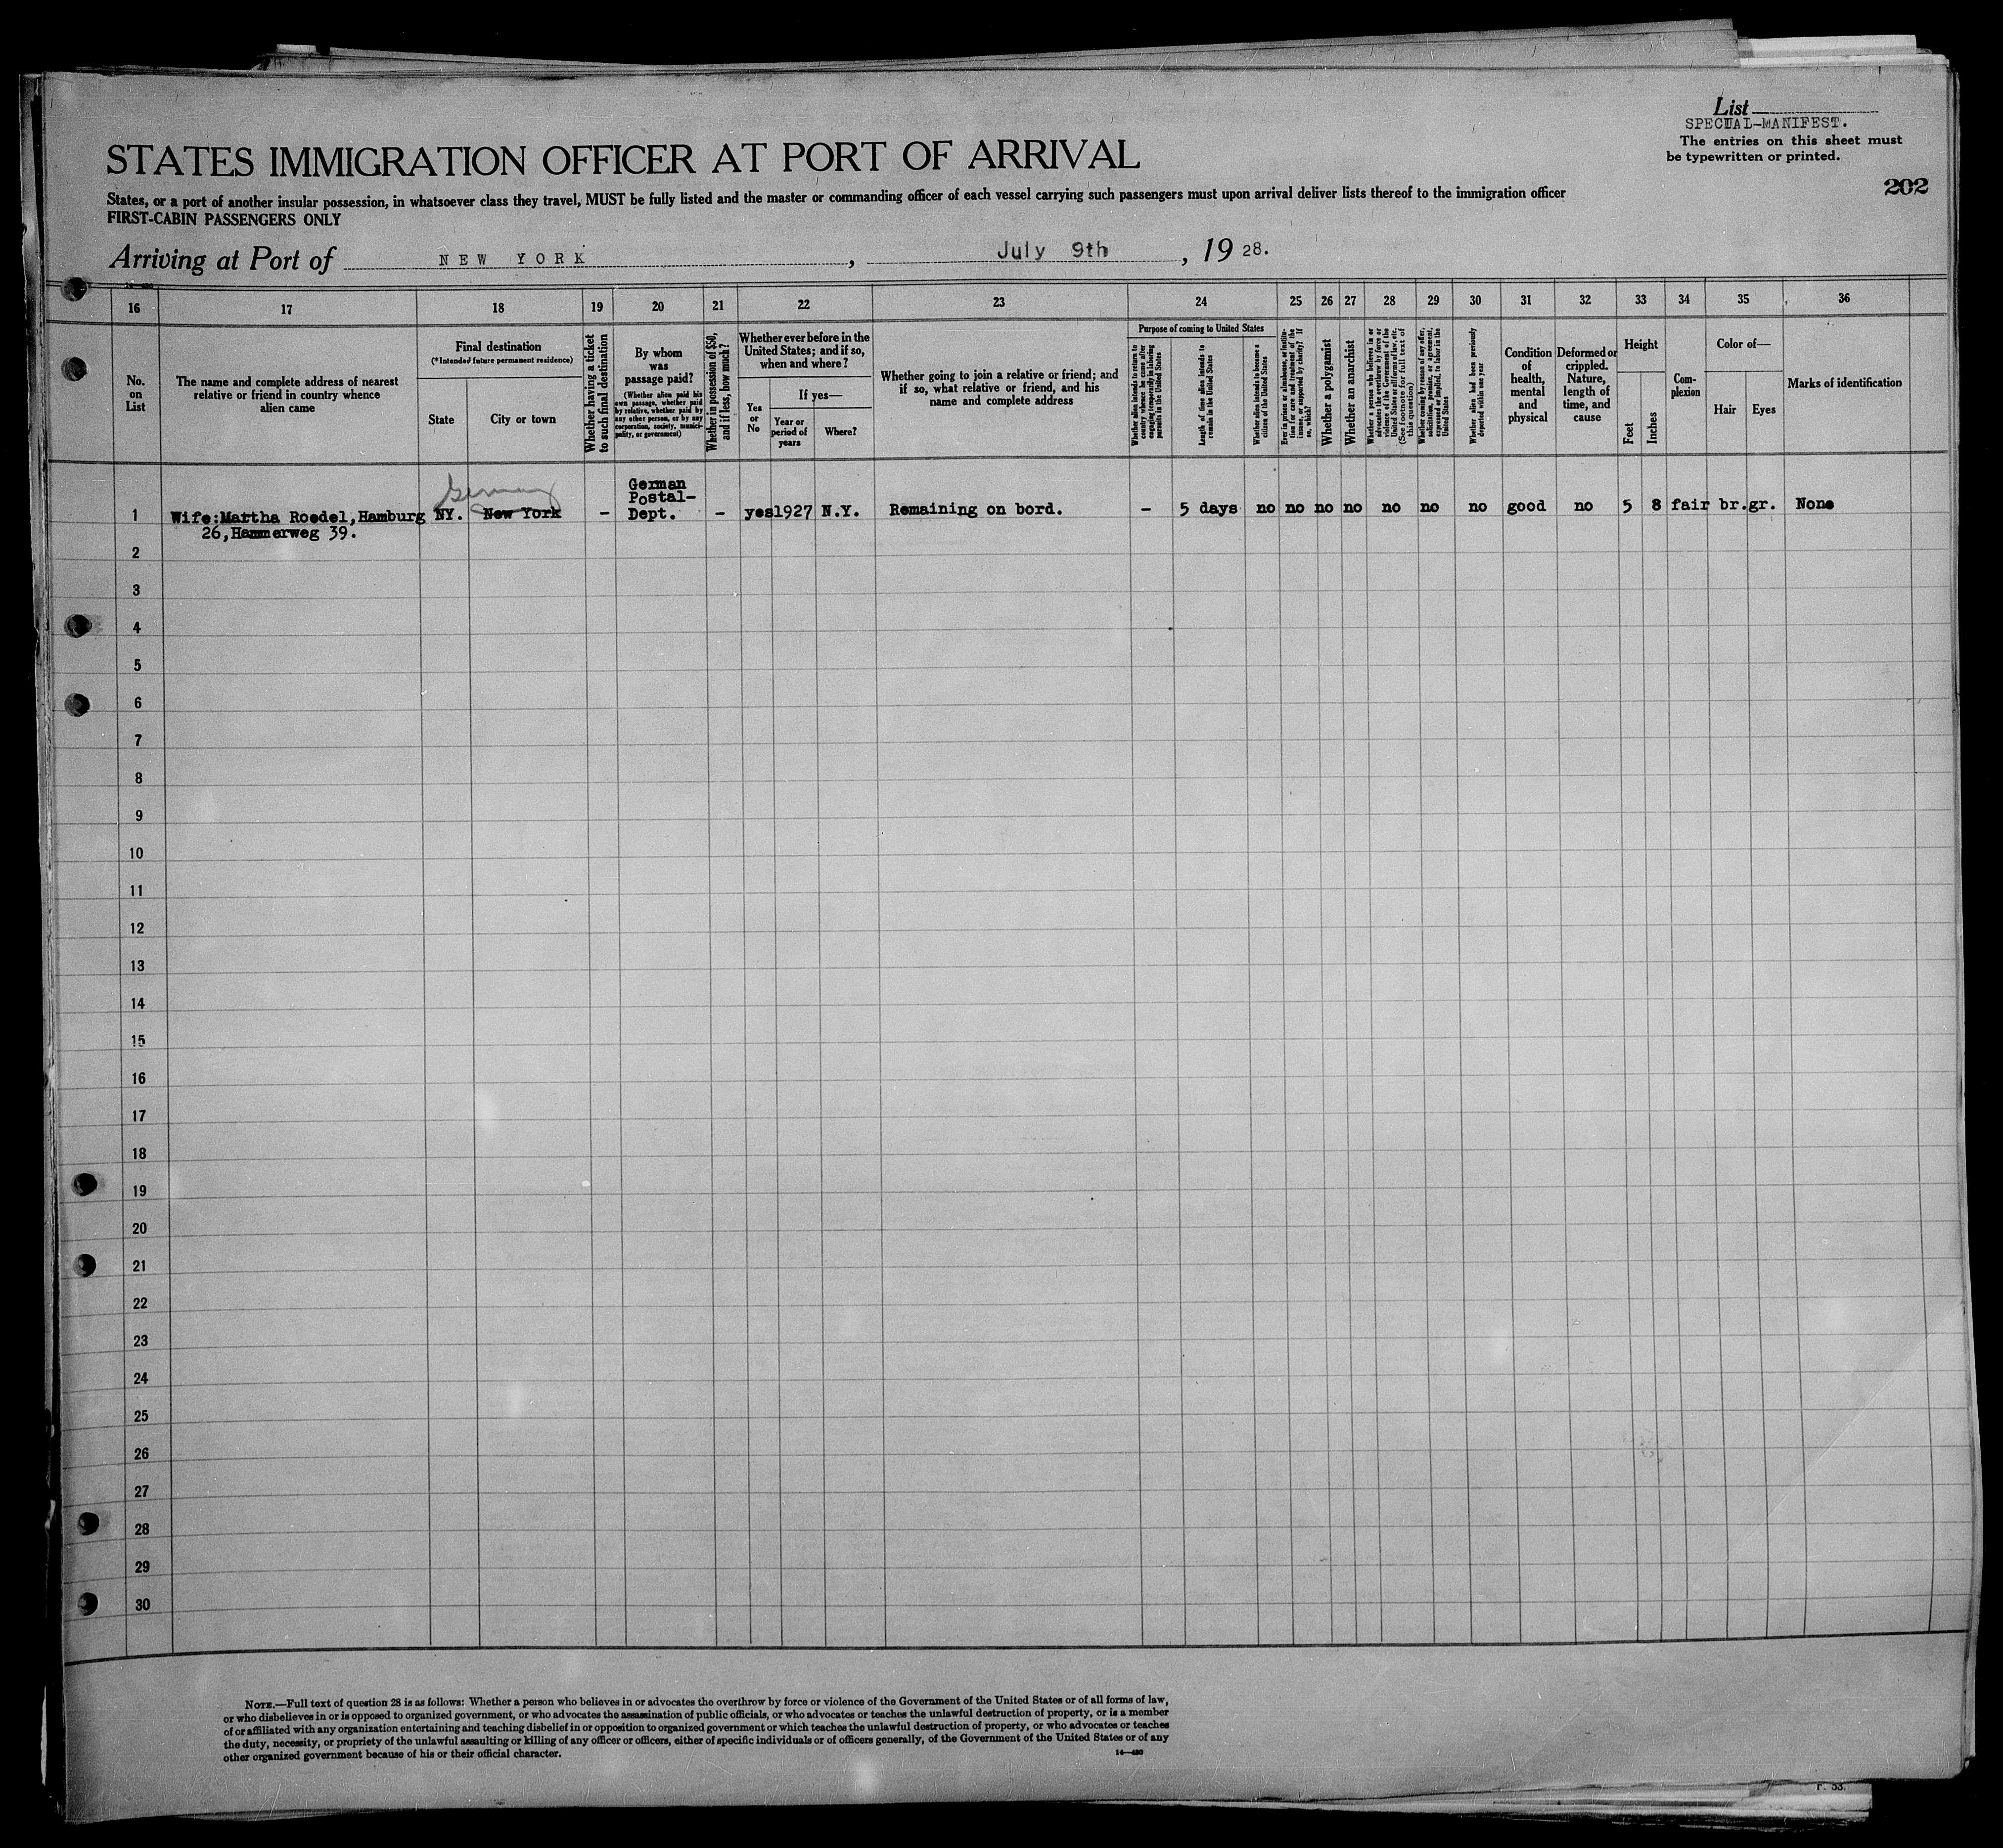 List
SPECIAL-MANIFEST.
The entries on this sheet must
be typewritten or printed.
202
STATES IMMIGRATION OFFICER AT PORT OF ARRIVAL
States, or a port of another insular possession, in whatsoever class they travel, MUST be fully listed and the master or commanding officer of each vessel carrying such passengers must upon arrival deliver lists thereof to the immigration officer
FIRST-CABIN PASSENGERS ONLY
Arriving at Port of NEW YORK, July 9th, 1928.
14—430
16 17 18 19 20 21 22 23 24 25 26 27 28 29 30 31 32 33 34 35 36
No.
on
List
The name and complete address of nearest
relative or friend in country whence
alien came
Final destination
(*Intended future permanent residence)
State
City or town
Whether having a ticket
to such final destination
By whom
was
passage paid?
(Whether alien paid his
own passage, whether paid
by relative, whether paid by
any other person, or by any
corporation, society, munici-
pality, or government)
Whether in possession of $50,
and if less, how much?
Whether ever before in the
United States; and if so,
when and where?
Yes
or
No
If yes—
Year or
period of
years
Where?
Whether going to join a relative or friend; and
if so, what relative or friend, and his
name and complete address
Purpose of coming to United States
Whether alien intends to return to
country whence he came after
engaging temporarily in laboring
pursuits in the United States
Length of time alien intends to
remain in the United States
Whether alien intends to become a
citizen of the United States
Ever in prison or almshouse, or institu-
tion for care and treatment of the
insane, or supported by charity? If
so, which?
Whether a polygamist
Whether an anarchist
Whether a person who believes in or
advocates the overthrow by force or
violence of the Government of the
United States or all forms of law, etc.
(See footnote for full text of
this question)
Whether coming by reason of any offer,
solicitation, promise, or agreement,
expressed or implied, to labor in the
United States
Whether alien had been previously
deported within one year
Condition
of
health,
mental
and
physical
Deformed or
crippled.
Nature,
length of
time, and
cause
Height
Feet
Inches
Com-
plexion
Color of—
Hair
Eyes
Marks of identification
Germany
1 Wife:Martha Roedel,Hamburg NY. New York - German
Postal-
Dept. - yes 1927 N.Y. Remaining on bord. - 5 days no no no no no no no good no 5 8 fair br. gr. None
26,Hammerweg 39.
2
3
4
5
6
7
8
9
10
11
12
13
14
15
16
17
18
19
20
21
22
23
24
25
26
27
28
29
30
NOTE.—Full text of question 28 is as follows: Whether a person who believes in or advocates the overthrow by force or violence of the Government of the United States or of all forms of law,
or who disbelieves in or is opposed to organized government, or who advocates the assassination of public officials, or who advocates or teaches the unlawful destruction of property, or is a member
of or affiliated with any organization entertaining and teaching disbelief in or opposition to organized government or which teaches the unlawful destruction of property, or who advocates or teaches
the duty, necessity, or propriety of the unlawful assaulting or killing of any officer or officers, either of specific individuals or of officers generally, of the Government of the United States or of any
other organized government because of his or their official character.
14—430
F. 53.